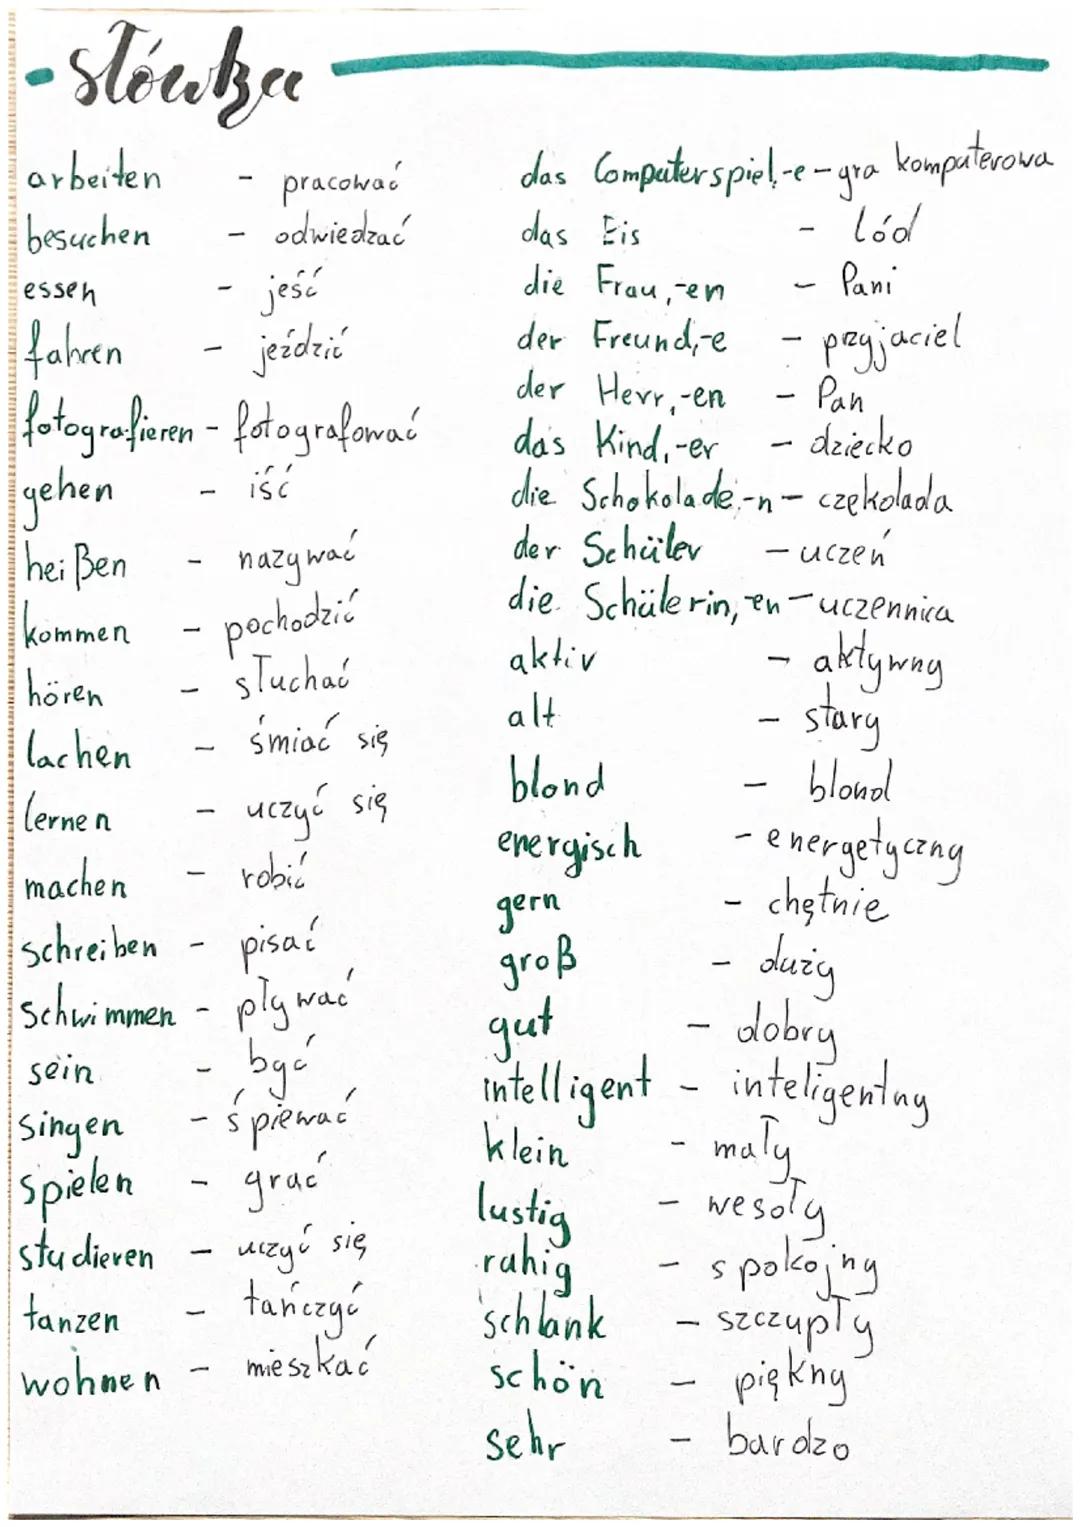 - słówka
arbeiten - pracować
besuchen - odwiedzać
essen - jeść
fahren - jeździć
fotografieren - fotografować
gehen - iść
heißen - nazywać
kommen - pochodzić
hören - słuchać
lachen - śmiać się
lernen - uczyć się
machen - robić
schreiben - pisać
schwimmen - pływać
sein - być
singen - śpiewać
spielen - grać
studieren - uczyć się
tanzen - tańczyć
wohnen - mieszkać
das Computerspiel,-e - gra komputerowa
das Eis - lód
die Frau,-en - Pani
der Freund,-e - przyjaciel
der Herr,-en - Pan
das Kind,-er - dziecko
die Schokolade,-n - czekolada
der Schüler - uczeń
die Schülerin,-en - uczennica
aktiv - aktywny
alt - stary
blond - blond
energisch - energetyczny
gern - chętnie
groß - duży
gut - dobry
intelligent - inteligentny
klein - mały
lustig - wesoły
ruhig - spokojny
schlank - szczupły
schön - piękny
sehr - bardzo